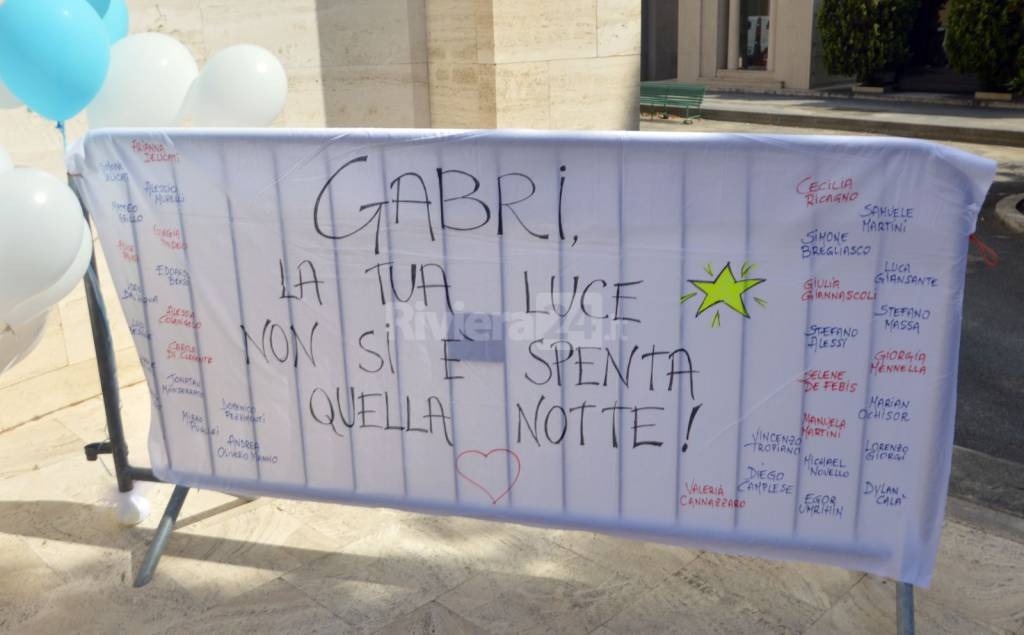 GABRI,
LA TUA LUCE
NON SI È SPENTA
QUELLA NOTTE!
Riviera24.it
ARIANNA
DELICATI
SIMONE
ALESSIO
MURELLI
MATTEO
GIORGIA
EDOARDO
ALESSIA
COLANGELO
CAROLA
DI CLEMENTE
JONATAN
DOMENICO
MIRKO
ANDREA
OLIVERO MANNO
CECILIA
RICAGNO
SAMUELE
MARTINI
SIMONE
BREGLIASCO
LUCA
GIANSANTE
GIULIA
GIANNASCOLI
STEFANO
MASSA
STEFANO
ALESSI
GIORGIA
MENNELLA
SELENE
DE FEBIS
MARIAN
OCHISOR
MANUELA
MARTINI
VINCENZO
TROPIANO
LORENZO
GIORGI
MICHAEL
NOVELLO
DIEGO
CAMPLESE
VALERIA
CANNAZZARO
EGOR
UMRIHIN
DYLAN
CALA'